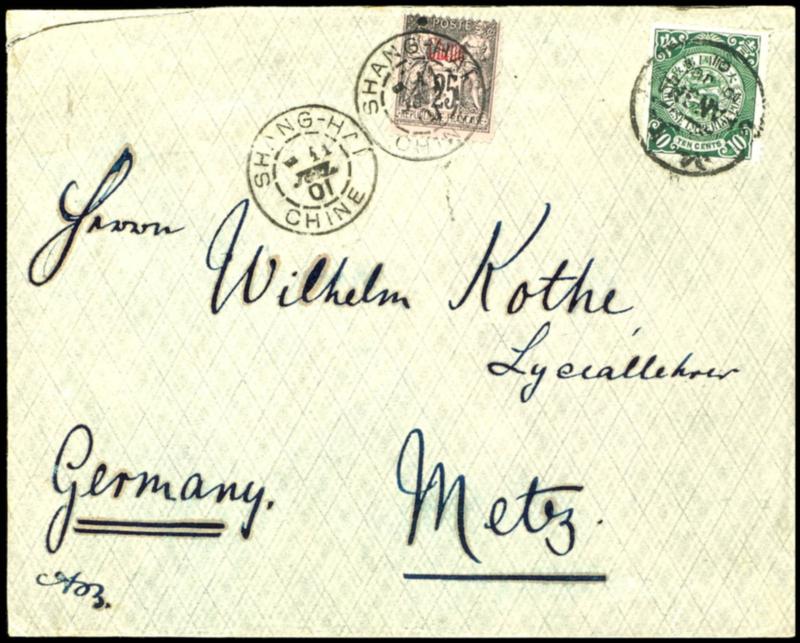 POSTE
25
SHANG-HAI
CHINE
SHANG-HAI
11
01
CHINE
10
TEN CENTS
Herrn
Wilhelm Kothe
Lyceallehrer
Germany.
Metz.